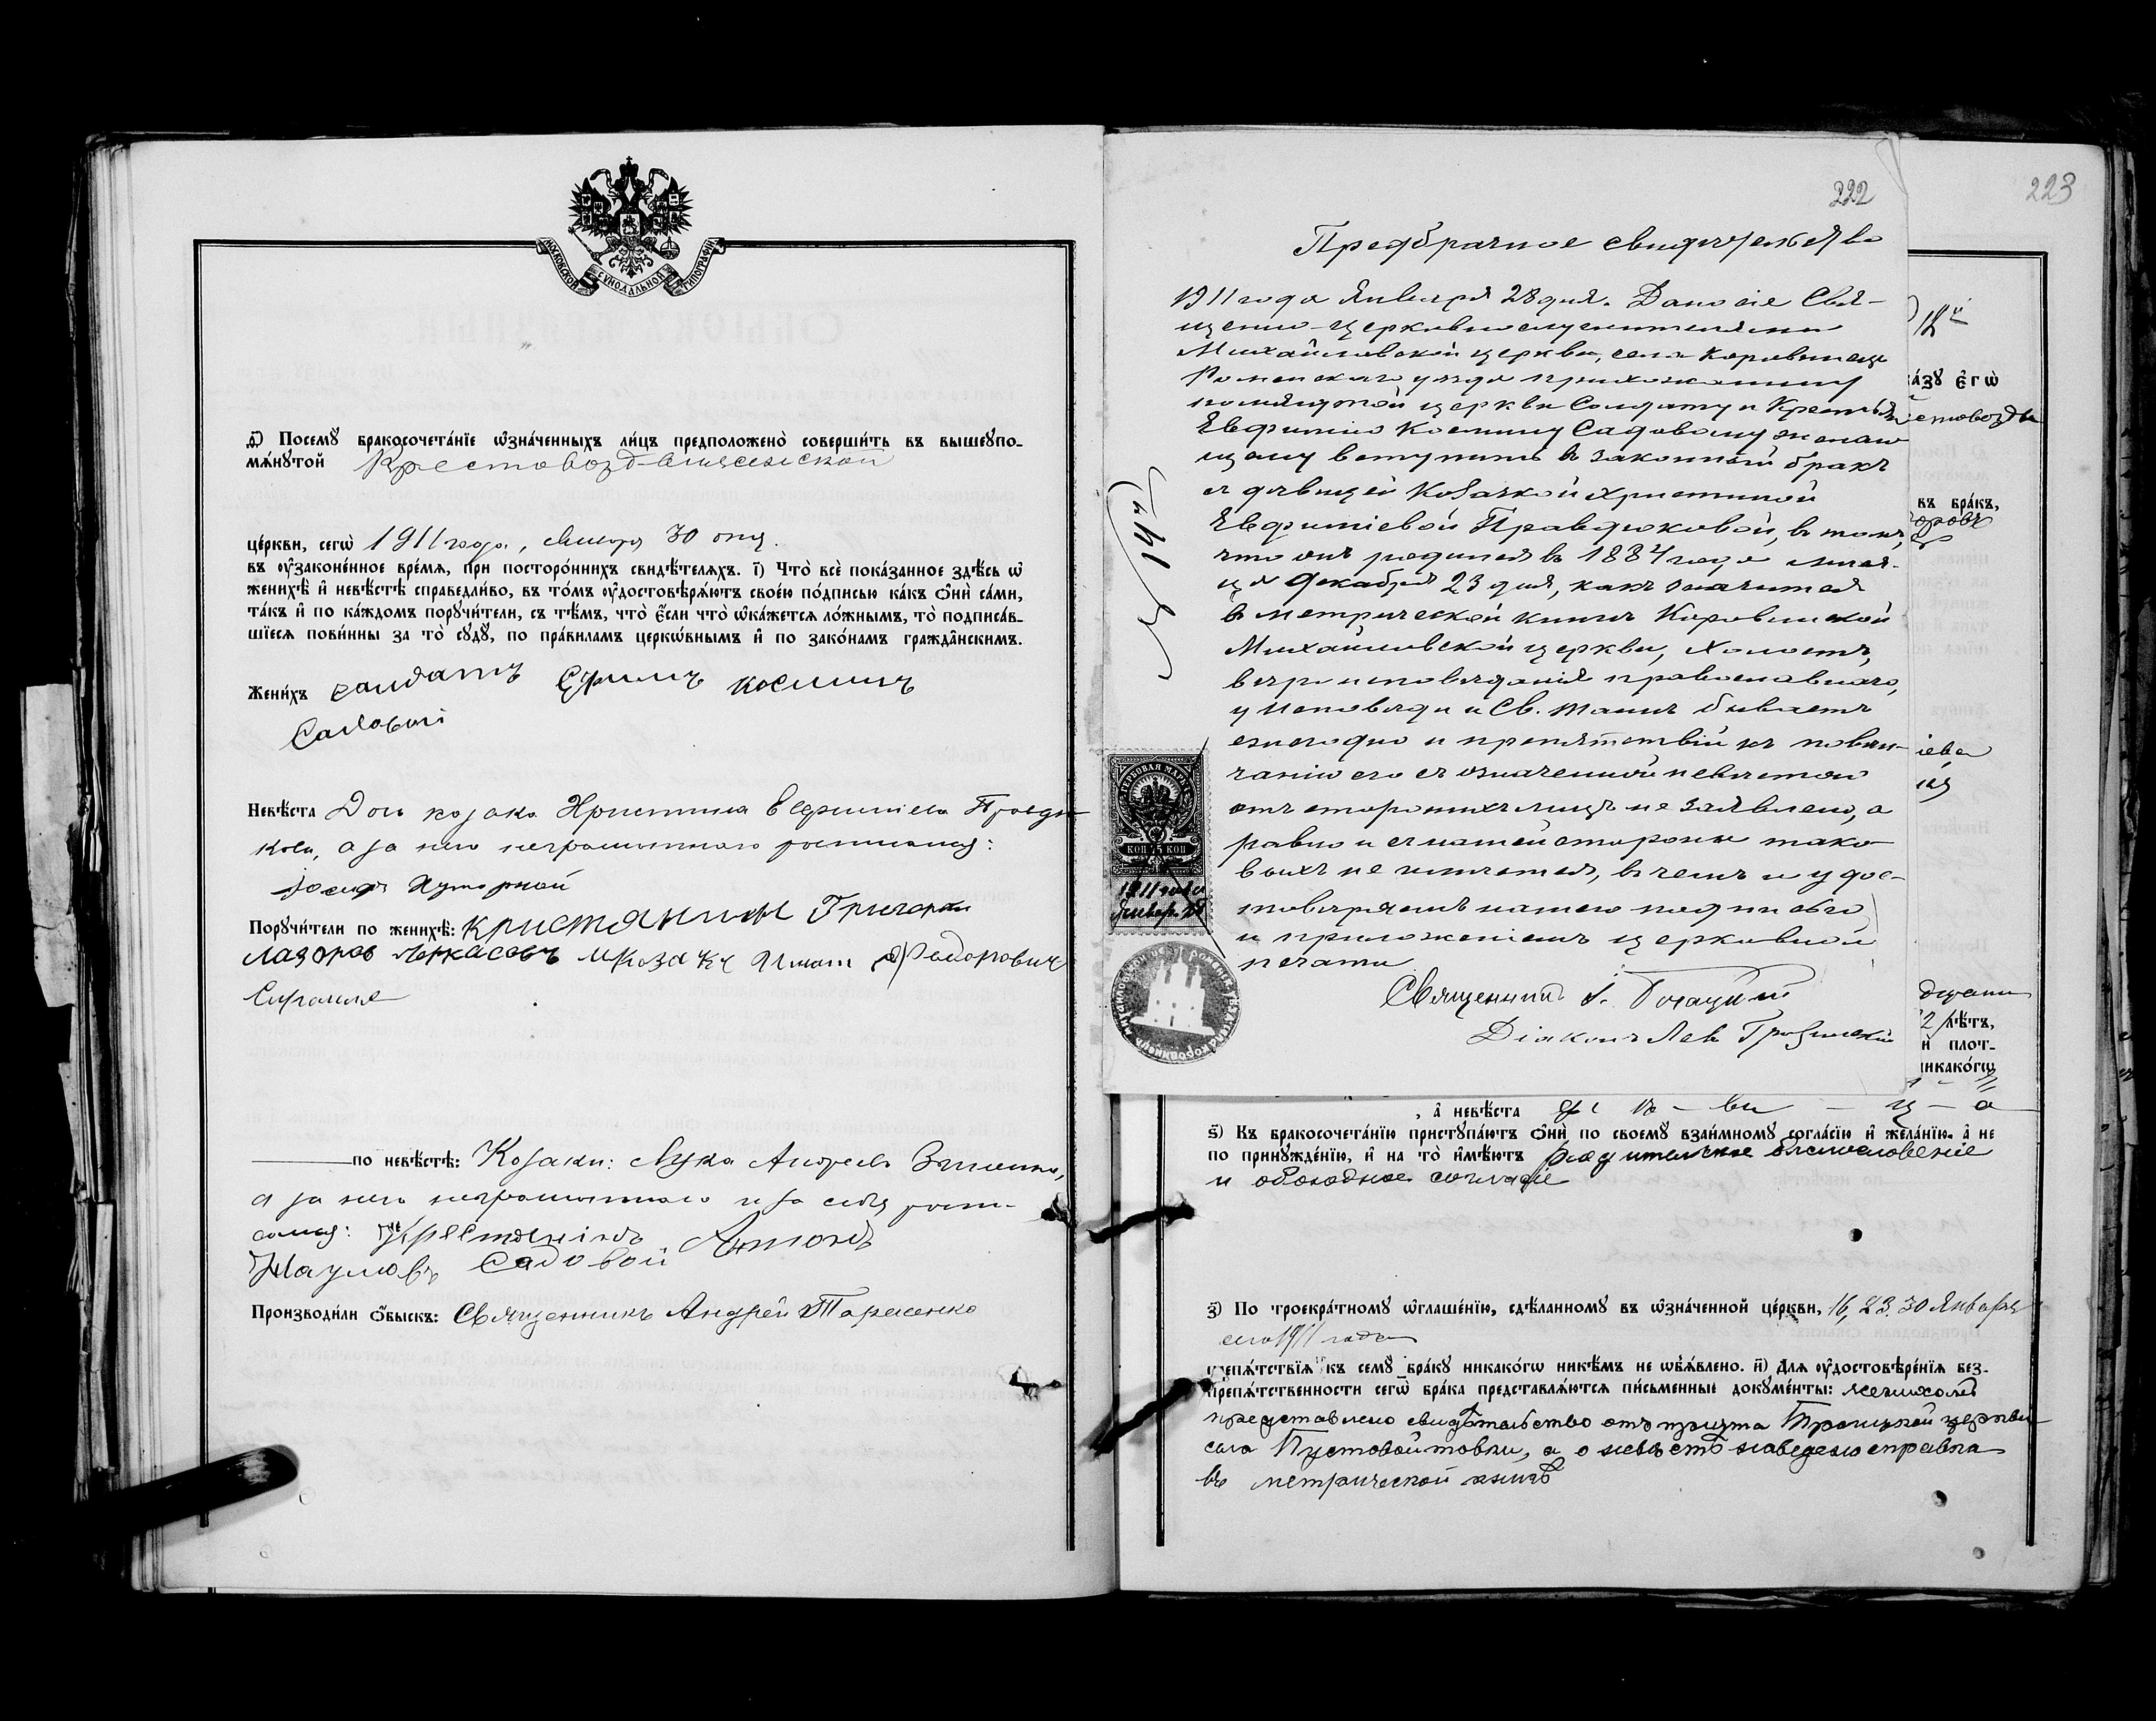 МОСКОВСКОЙ СѴНОДАЛЬНОЙ ТИПОГРАФІИ
д҃) Посемꙋ бракосочета́нїе ѡ҆зна́ченныхъ ли́цъ предположено̀ соверши́ть въ вышеꙋпо-
мѧ́нꙋтой Крестовоздвиженской
це́ркви, сегѡ̀ 1911 года, января 30 дня.
въ ᲂу҆законе́нное вре́мѧ, при посторо́ннихъ свидѣ́телѧхъ. і҃) Что̀ всѐ пока́занное здѣ́сь ѡ҆
женихѣ̀ и҆ невѣ́стѣ справедли́во, въ то́мъ ᲂу҆достовѣрѧ́ютъ свое́ю по́дписью ка́къ ѻ҆нѝ са́ми,
та́къ и҆ по ка́ждомъ порꙋчи́тели, съ тѣ́мъ, что̀ є҆́сли что̀ ѡ҆ка́жетсѧ ло́жнымъ, то̀ подписа́в-
шїесѧ пови́нны за то̀ сꙋдꙋ̀, по пра́виламъ церкѡ́внымъ и҆ по зако́намъ гражда̂нскимъ.
Жени́хъ Салдатъ Ефимъ Косминъ
Садовый
Невѣ́ста Дочь козака Христина Евфиміева Правдю-
кова, а за нею неграмотною росписался:
Іосифъ Хуторной
Порꙋчи́тели по женихѣ̀: кристянинъ Григорий
Лазоров Черкасовъ и козакъ Федорович
по невѣ́стѣ: Козаки: Лука Андреевъ
а за него неграмотного и за себя роспи-
сался: Крестянинъ Антонъ
Наумовъ Садовой
Производи́ли ѻ҆́быскъ: Священникъ Андрей Тарасенко
222
223
Предбрачное свидѣтельство
1911 года Января 28 дня. Дано сіе Свя-
щенно-церковнослужителями
Михайловской церкви, села Коровинецъ
Роменскаго уѣзда прихожанину
помянутой церкви Солдату и Крестьян.
Евфимію Космину Садовому желаю-
щему вступить въ законный бракъ
съ дѣвицей Козачкой Христиной
Евфиміевой Правдюковой, въ томъ,
что онъ родился въ 1884 года мѣся-
ца Декабря 23 дня, какъ значится
въ метрической книгѣ Коровинской
Михайловской церкви, холостъ,
вѣроисповѣданія православнаго,
у Исповѣди и Св. Таинъ бываетъ
ежегодно и препятствій къ повѣн-
чанію его съ означенной невѣстою
отъ стороннихъ лицъ не заявлено, а
равно и съ нашей стороны тако-
выхъ не имѣется, въ чемъ и удос-
товѣряемъ нашею подписью
и приложеніемъ церковной
печати
Священникъ
Діаконъ Левъ
№ 14й
ГЕРБОВАЯ МАРКА
75 КОП
1911 года
Январ. 28
а́зꙋ є҆гѡ̀
въ бра́къ,
лѣ́тъ,
и҆ плот-
никако́гѡ
, а҆ невѣ́ста дѣ - ви - ц - а
ѕ҃) Къ бракосочета́нїю пристꙋпа́ютъ ѻ҆нѝ по своемꙋ̀ взаи́мномꙋ согла́сїю и҆ жела́нїю, а҆ не
по принꙋжде́нїю, и҆ на то̀ и҆мѣ́ютъ родительское благословеніе
и обоюдное согласіе
з҃) По троекра́тномꙋ ѡ҆глаше́нїю, сдѣ́ланномꙋ въ ѡ҆зна́ченной це́ркви, 16, 23, 30 Января
сего 1911 года
препѧ́тствїѧ къ семꙋ̀ бра́кꙋ никако́гѡ никѣ́мъ не ѡ҆б̾ѧ́влено. и҃) Длѧ ᲂу҆достовѣре́нїѧ без-
препѧ́тственности сегѡ̀ бра́ка представлѧ́ютсѧ пи́сьменные докꙋме́нты: женихомъ
представлено свидѣтельство отъ причта Троицкой церкви
села Пустовойтовки, а о невѣстѣ наведена справка
въ метрической книгѣ